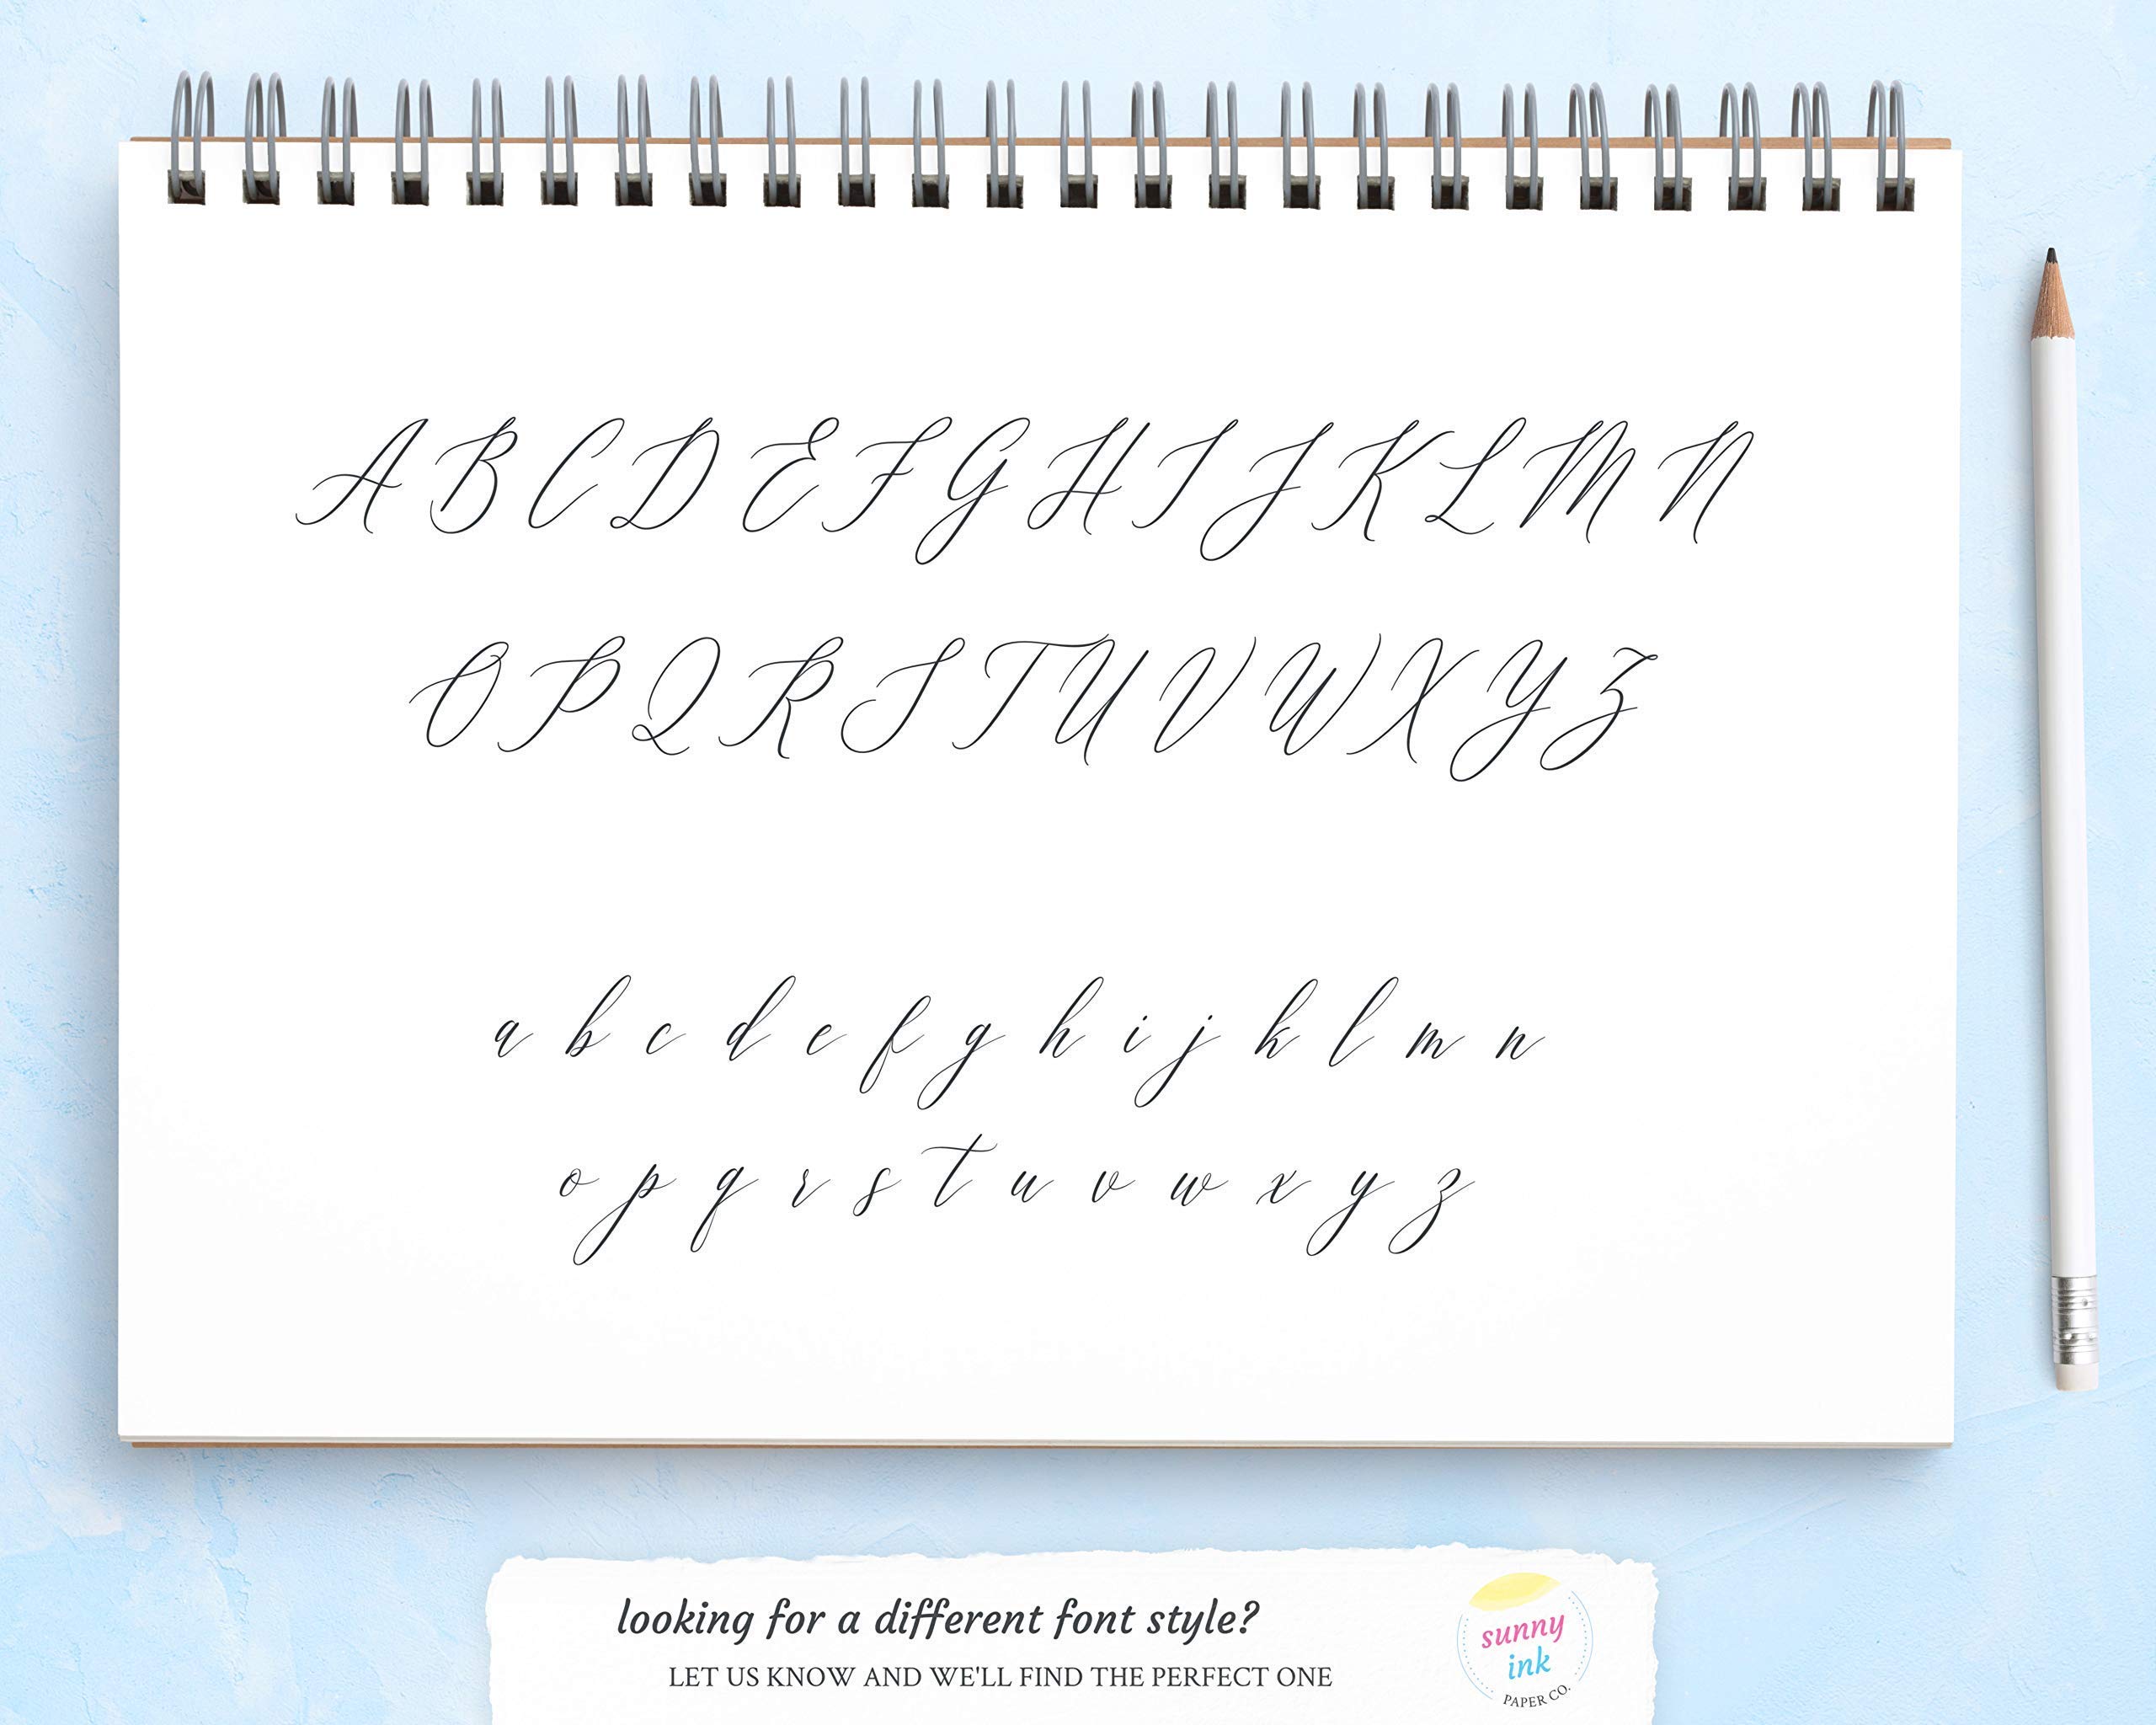 A B C D E F G H I J K L M N
O P Q R S T U V W X Y Z
a b c d e f g h i j k l m n
o p q r s t u v w x y z
looking for a different font style?
LET US KNOW AND WE'LL FIND THE PERFECT ONE
sunny
ink
PAPER CO.